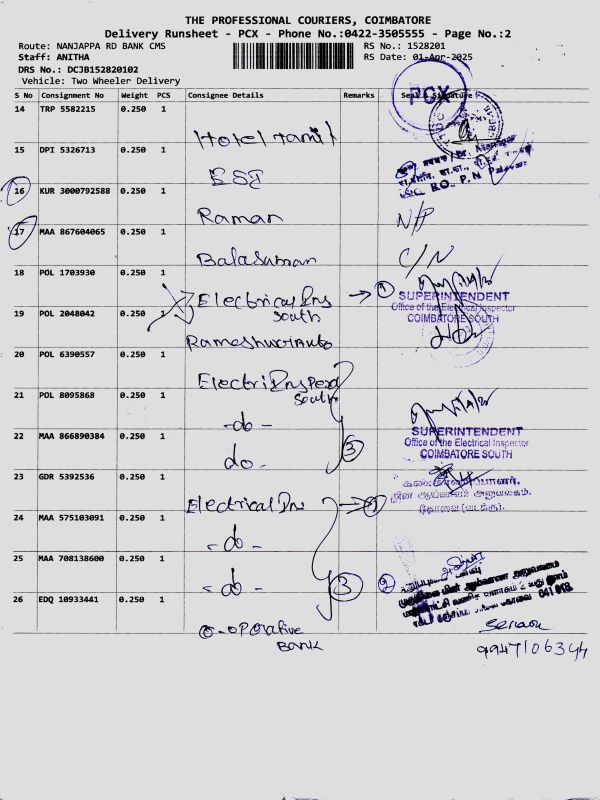 THE PROFESSIONAL COURIERS, COIMBATORE
Delivery Runsheet - PCX - Phone No.:0422-3505555 - Page No.:2
Route: NANJAPPA RD BANK CMS
RS No.: 1528201
Staff: ANITHA
RS Date: 01-Apr-2025
DRS No.: DCJB152820102
Vehicle: Two Wheeler Delivery
S No Consignment No Weight PCS Consignee Details Remarks Seal & Signature
PCX
14 TRP 5582215 0.250 1
Hotel Tamil
15 DPI 5326713 0.250 1
ESI
16 KUR 3000792588 0.250 1
Raman N/P
17 MAA 867604065 0.250 1
Balasuman C/N
18 POL 1703930 0.250 1
Electrical Ins → 1
South
SUPERINTENDENT
Office of the Electrical Inspector
COIMBATORE SOUTH
19 POL 2048042 0.250 1
20 POL 6390557 0.250 1
South
21 POL 8095868 0.250 1
-do-
22 MAA 866890384 0.250 1
do- 3
SUPERINTENDENT
Office of the Electrical Inspector
COIMBATORE SOUTH
23 GDR 5392536 0.250 1
Electrical Ins
மின் ஆய்வாளர் அலுவலகம்,
கோவை (வடக்கு).
24 MAA 575103091 0.250 1
-do-
25 MAA 708138600 0.250 1
-do- 3 2
26 EDQ 10933441 0.250 1
641 018
Co-operative
BANK
9947106344